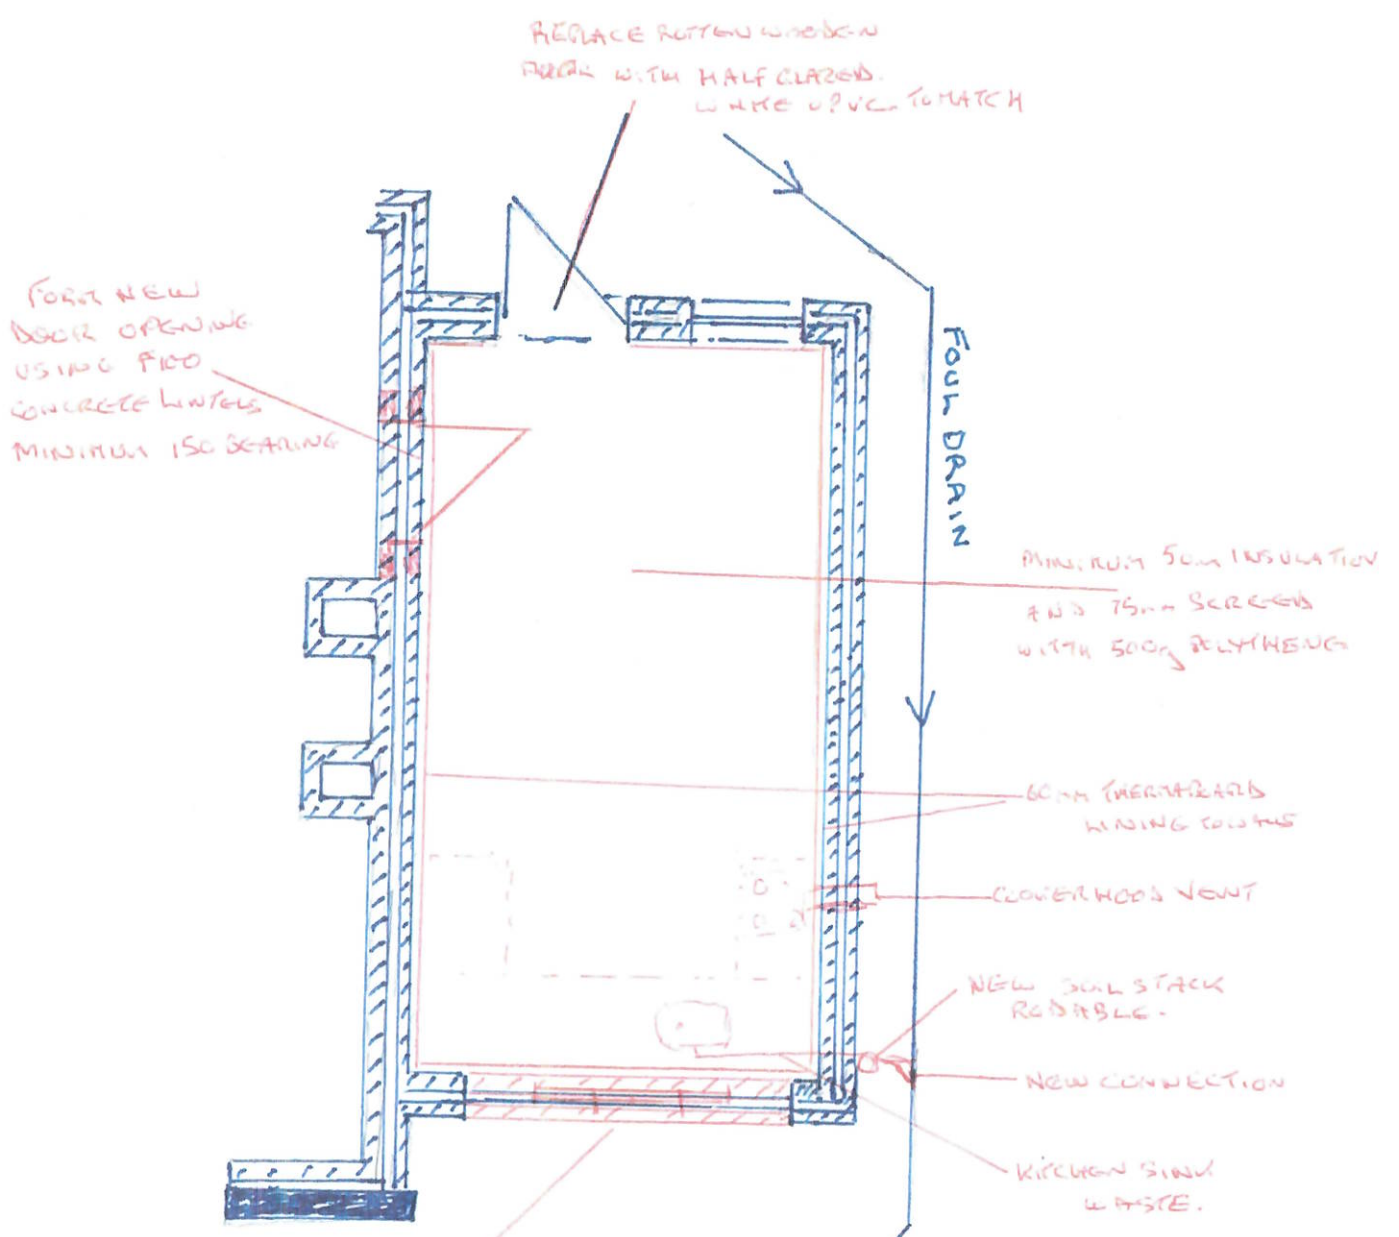 REPLACE ROTTEN WOODEN
DOOR WITH HALF GLAZED.
WHITE UPVC TO MATCH
FORM NEW
DOOR OPENING
USING
CONCRETE LINTELS
MINIMUM 150 BEARING
FOUL DRAIN
MINIMUM 50mm INSULATION
AND 75mm SCREED
WITH 500g POLYTHENE
60mm THERMABOARD
LINING TO WALLS
COOKERHOOD VENT
NEW SOIL STACK
RODABLE.
NEW CONNECTION
KITCHEN SINK
WASTE.